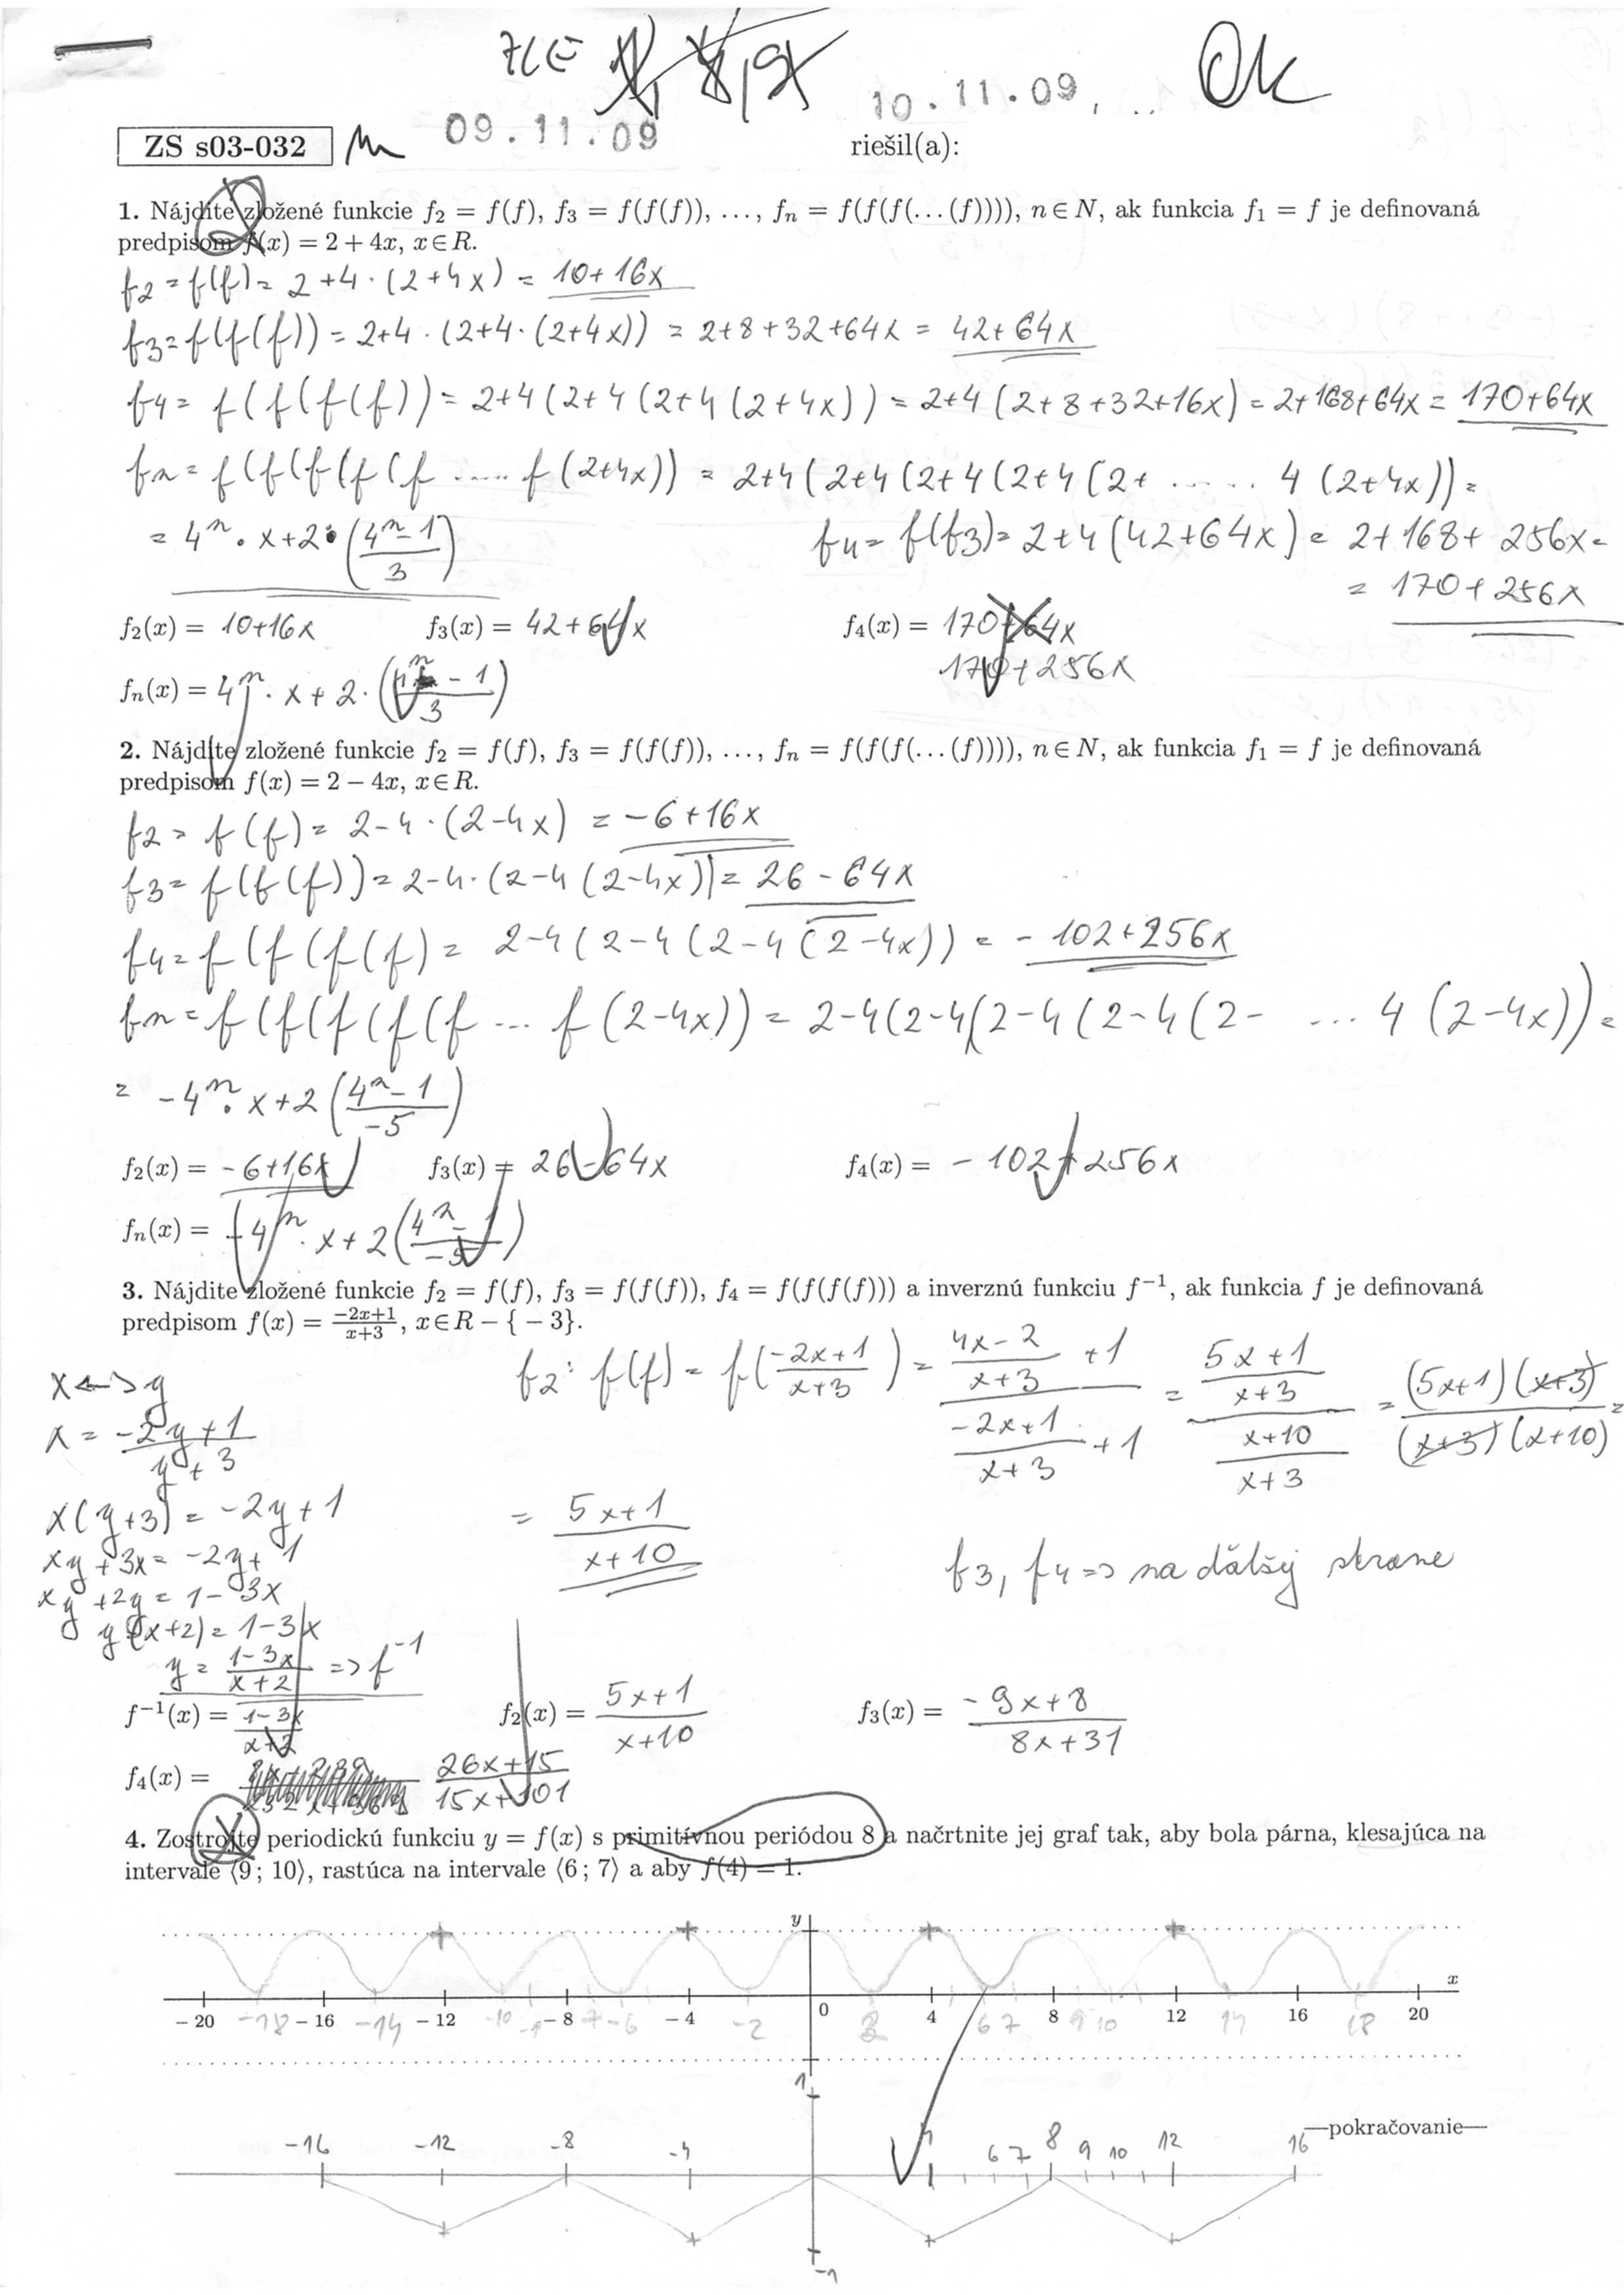 09.11.09
10.11.09
Ok
ZS s03-032
riešil(a):
1. Nájdite zložené funkcie f₂ = f(f), f₃ = f(f(f)), ..., fₙ = f(f(f(...(f)))), n∈N, ak funkcia f₁ = f je definovaná
predpisom f(x) = 2 + 4x, x∈R.
f2 = f(f) = 2+4·(2+4x) = 10+16x
f3 = f(f(f)) = 2+4·(2+4·(2+4x)) = 2+8+32+64x = 42+64x
f4 = f(f(f(f)) = 2+4(2+4(2+4(2+4x)) = 2+4(2+8+32+16x) = 2+168+64x = 170+64x
fn = f(f(f(f(f ..... f(2+4x)) = 2+4(2+4(2+4(2+4(2+ ..... 4(2+4x)) =
= 4ⁿ·x+2·((4ⁿ-1)/3)
f4 = f(f3) = 2+4(42+64x) = 2+168+256x =
= 170+256x
f₂(x) = 10+16x f₃(x) = 42+64x f₄(x) = 170+64x
170+256x
fₙ(x) = 4ⁿ·x+2·((4ⁿ-1)/3)
2. Nájdite zložené funkcie f₂ = f(f), f₃ = f(f(f)), ..., fₙ = f(f(f(...(f)))), n∈N, ak funkcia f₁ = f je definovaná
predpisom f(x) = 2 − 4x, x∈R.
f2 = f(f) = 2-4·(2-4x) = -6+16x
f3 = f(f(f)) = 2-4·(2-4(2-4x)) = 26-64x
f4 = f(f(f(f) = 2-4(2-4(2-4(2-4x)) = -102+256x
fn = f(f(f(f(f(f ... f(2-4x)) = 2-4(2-4(2-4(2-4(2- ... 4(2-4x)) =
= -4ⁿ·x+2((4ⁿ-1)/-5)
f₂(x) = -6+16x f₃(x) = 26-64x f₄(x) = -102+256x
fₙ(x) = -4ⁿ·x+2((4ⁿ-1)/-5)
3. Nájdite zložené funkcie f₂ = f(f), f₃ = f(f(f)), f₄ = f(f(f(f))) a inverznú funkciu f⁻¹, ak funkcia f je definovaná
predpisom f(x) = (−2x+1)/(x+3), x∈R − { − 3}.
f2: f(f) = f((-2x+1)/(x+3)) = ((4x-2)/(x+3) +1)/((-2x+1)/(x+3) +1) = ((5x+1)/(x+3))/((x+10)/(x+3)) = ((5x+1)(x+3))/((x+3)(x+10)) =
= (5x+1)/(x+10)
x <-> y
x = (-2y+1)/(y+3)
x(y+3) = -2y+1
xy+3x = -2y+1
xy+2y = 1-3x
y(x+2) = 1-3x
y = (1-3x)/(x+2) => f⁻¹
f3, f4 => na ďalšy strane
f⁻¹(x) = (1-3x)/(x+2) f₂(x) = (5x+1)/(x+10) f₃(x) = (-9x+8)/(8x+31)
f₄(x) = (26x+15)/(15x+101)
4. Zostrojte periodickú funkciu y = f(x) s primitívnou periódou 8 a načrtnite jej graf tak, aby bola párna, klesajúca na
intervale ⟨9; 10⟩, rastúca na intervale ⟨6; 7⟩ a aby f(4) = 1.
y
x
− 20 − 16 − 12 − 8 − 4 0 4 8 12 16 20
-18 -14 -10 -9 -7 -6 -2 2 6 7 9 10 14 18
1
—pokračovanie—
-16 -12 -8 -4 4 6 7 8 9 10 12 16
-1